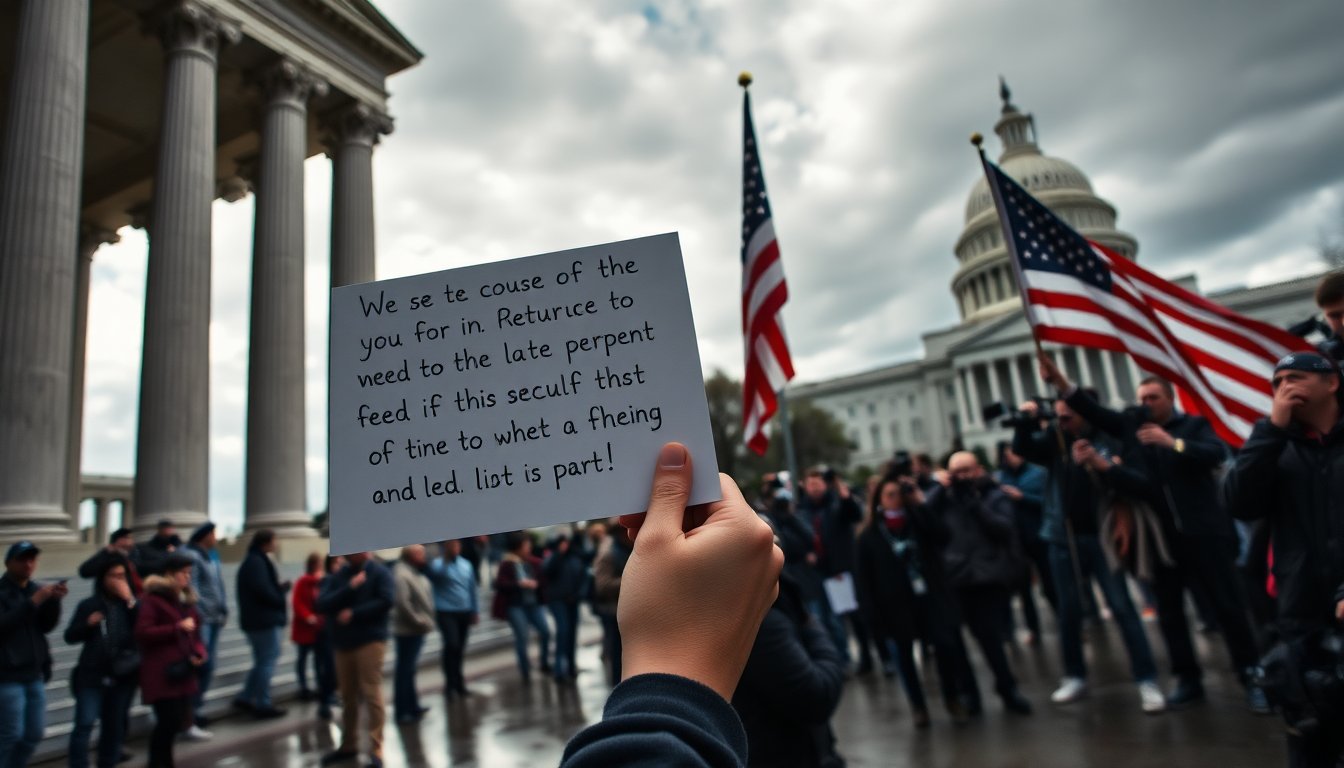 We se te couse of the
you for in. Returice to
need to the late perpent
feed if this seculf thst
of tine to whet a fheing
and led. list is part!